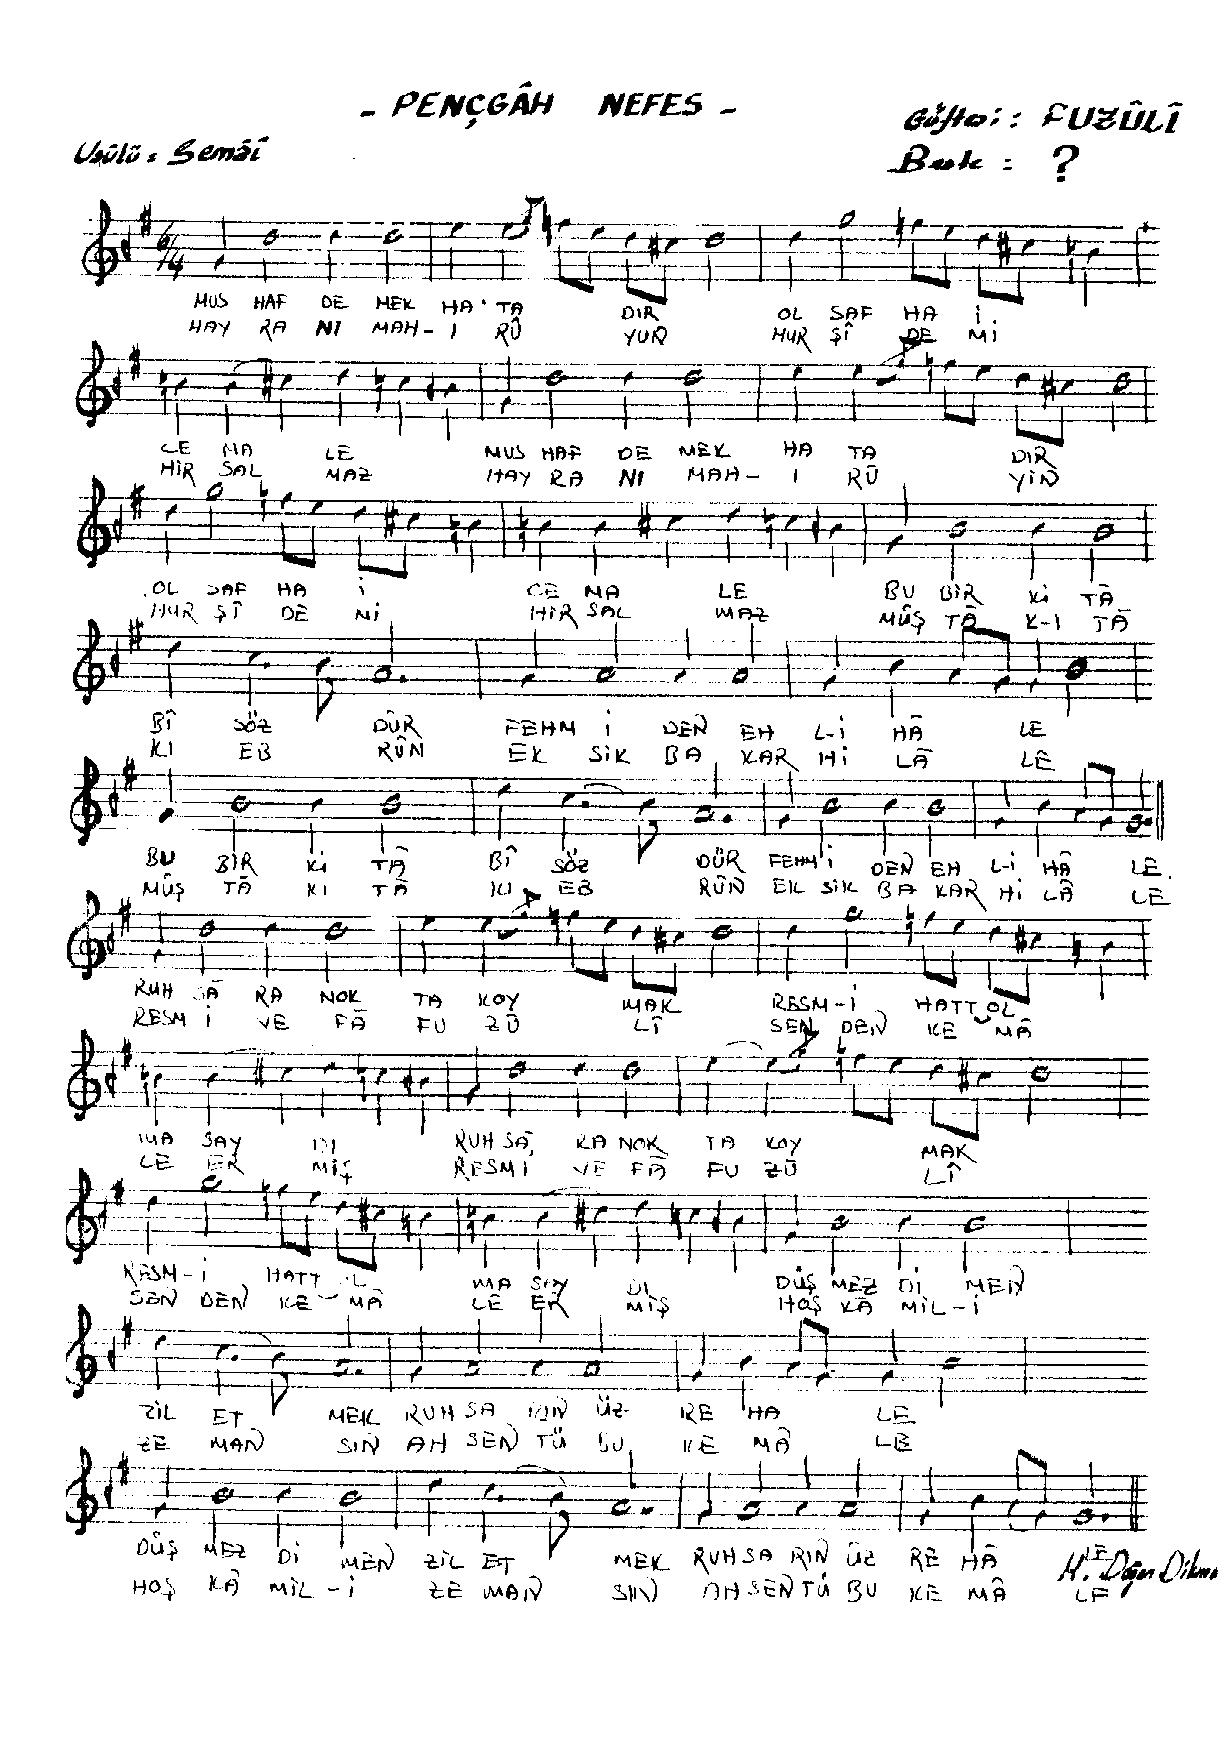 - PENÇGÂH NEFES -
Güfte : FUZÛLÎ
Usûlü : Semâî
Beste : ?
6/4
MUS HAF DE MEK HA TA DIR OL SAF HA İ
HAY RA NI MAH - I RÛ YUN HUR ŞÎ DE Mİ
CE MA LE MUS HAF DE MEK HA TA DIR
HİR SAL MAZ HAY RA NI MAH - I RÛ YİN
OL SAF HA İ CE MA LE BU BİR Kİ TÂ
HUR ŞÎ DE Mİ HİR SAL MAZ MÛŞ TÂ K-I TÂ
BÎ SÖZ DÛR FEHM İ DEN EH L-İ HÂ LE
KI EB RÛN EK SİK BA KAR Hİ LÂ LE
BU BİR Kİ TÂ BÎ SÖZ DÜR FEHM İ DEN EH L-İ HÂ LE
MÛŞ TÂ KI TÂ KI EB RÛN EK SİK BA KAR Hİ LÂ LE
RUH SÂ RA NOK TA KOY MAK RESM-İ HATT OL
RESM İ VE FÂ FU ZÛ LÎ SEN DEN KE MÂ
MA SAY DI RUH SÂ RA NOK TA KOY MAK
LE ER MİŞ RESM İ VE FÂ FU ZÛ LÎ
RESM-İ HATT OL MA SAY DI DÜŞ MEZ Dİ MEN
SEN DEN KE MÂ LE ER MİŞ HOŞ KÂ MİL-İ
ZİL ET MEK RUH SA RIN ÜZ RE HA LE
ZE MAN SIN AH SEN TÜ BU KE MÂ LE
DÜŞ MEZ Dİ MEN ZİL ET MEK RUH SA RIN ÜZ RE HÂ LE
HOŞ KÂ MİL - İ ZE MAN SIN AH SEN TÜ BU KE MÂ LE